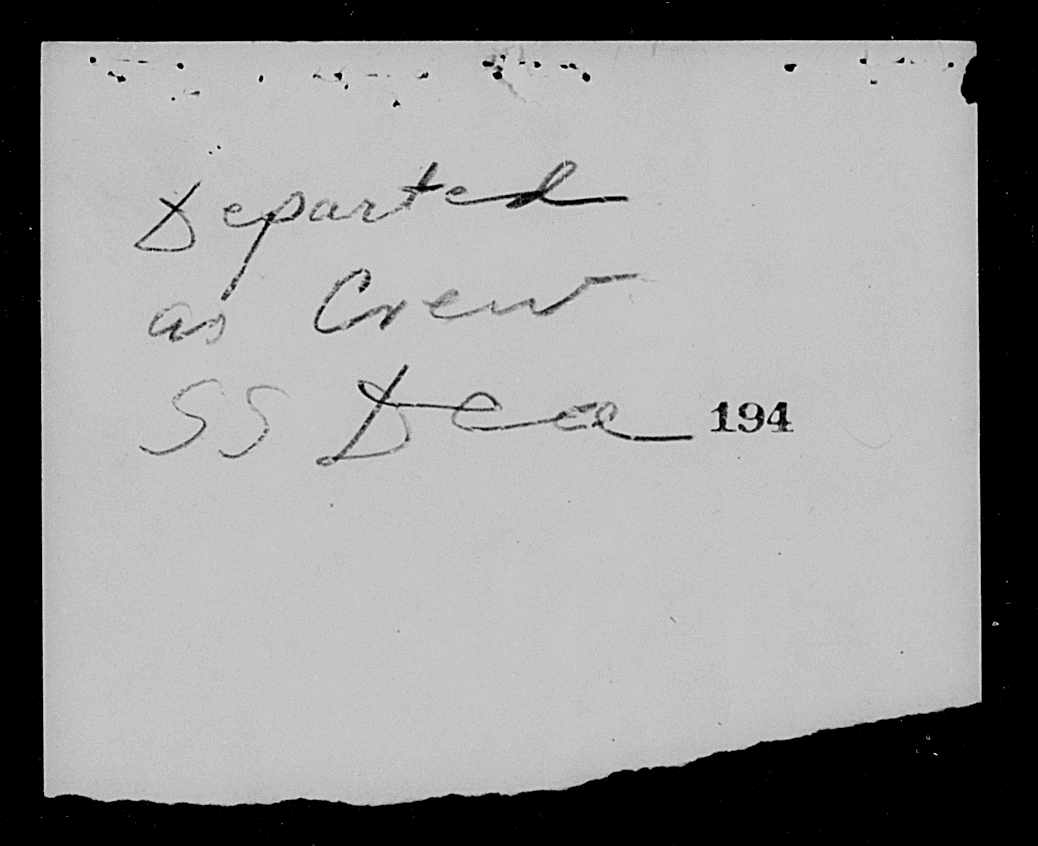 Departed
as Crew
SS Dea 194